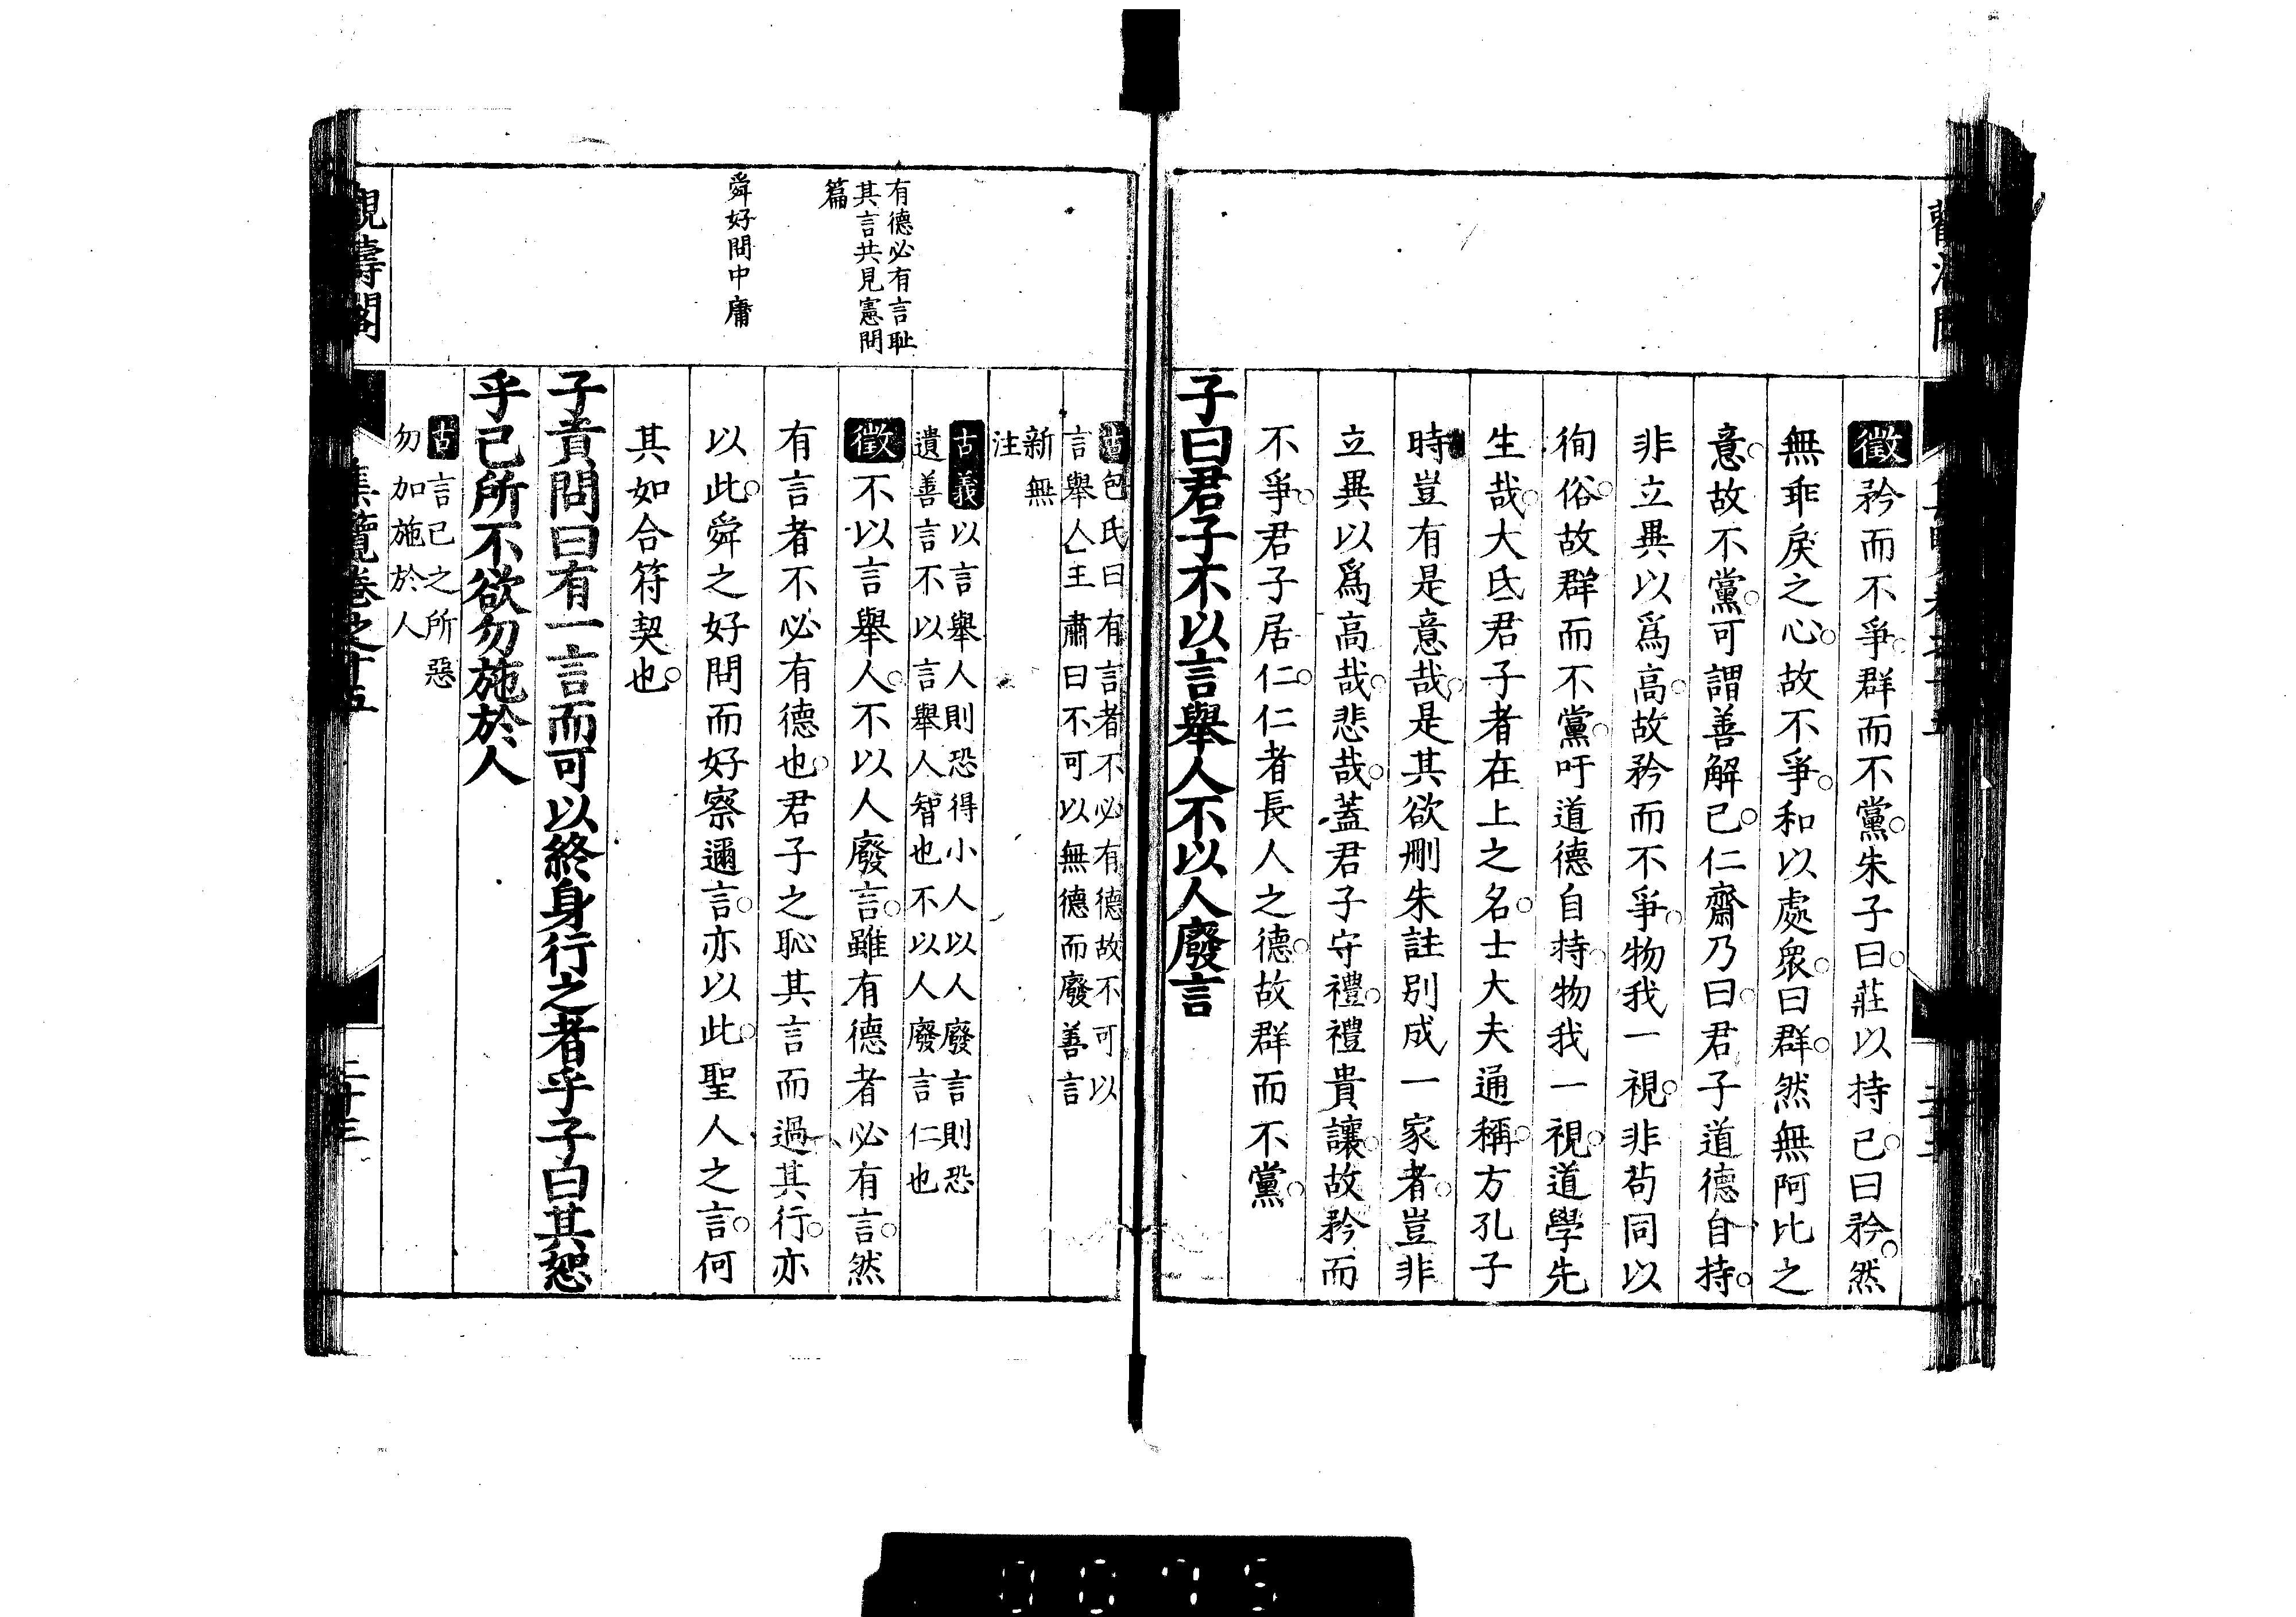 徵矜而不爭群而不黨朱子曰莊以持己曰矜然
無乖戾之心故不爭和以處衆曰群然無阿比之
意故不黨可謂善解已仁齋乃曰君子道德自持
非立異以爲高故矜而不爭物我一視非苟同以
徇俗故群而不黨吁道德自持物我一視道學先
生哉大氐君子者在上之名士大夫通稱方孔子
時豈有是意哉是其欲刪朱註別成一家者豈非
立異以爲高哉悲哉蓋君子守禮禮貴讓故矜而
不爭君子居仁仁者長人之德故群而不黨
子曰君子不以言舉人不以人廢言
古包氏曰有言者不必有德故不可以
言舉人王肅曰不可以無德而廢善言
新無
注
古義以言舉人則恐得小人以人廢言則恐
遺善言不以言舉人智也不以人廢言仁也
有德必有言恥
其言共見憲問
篇
徵不以言舉人不以人廢言雖有德者必有言然
有言者不必有德也君子之恥其言而過其行亦
舜好問中庸
以此舜之好問而好察邇言亦以此聖人之言何
其如合符契也
子貢問曰有一言而可以終身行之者乎子曰其恕
乎己所不欲勿施於人
古言己之所惡
勿加施於人
觀濤閣
集覽卷之十五
二十三